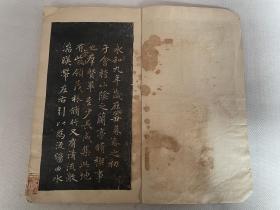 永和九年歲在癸丑暮春之初會
于會稽山陰之蘭亭脩禊事
也群賢畢至少長咸集此地
有崇領茂林脩竹又有清流激
湍暎帶左右引以為流觴曲水